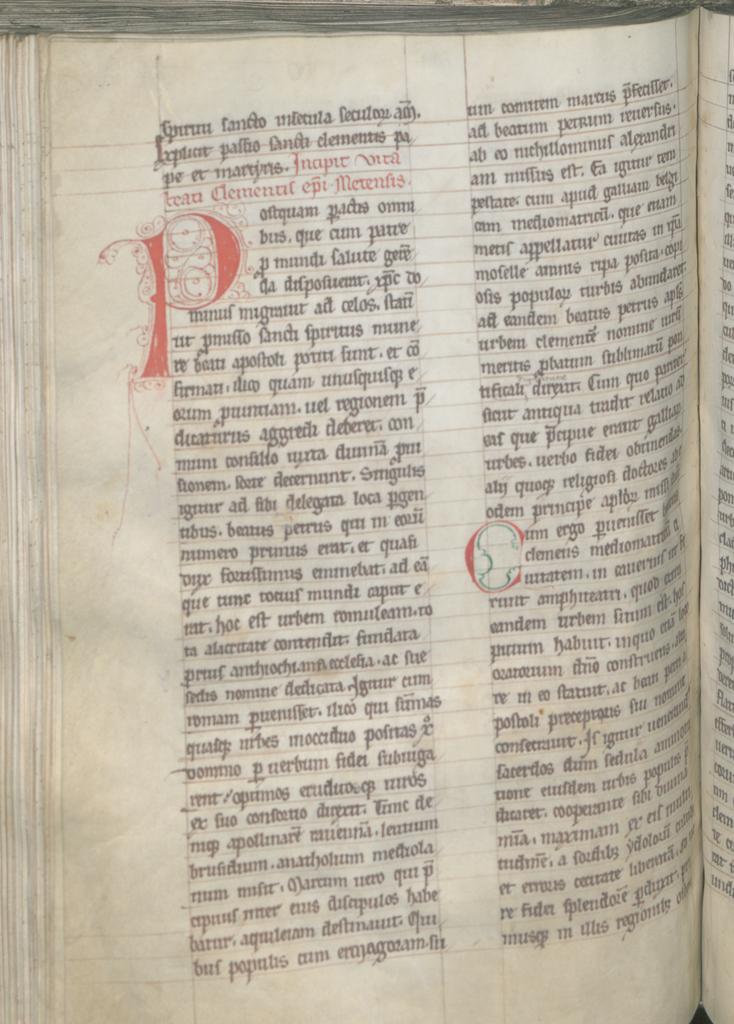 spiritu sancto in secula seculoꝝ am̄.
Explicit passio sancti clementis pa
pe et martyris. Incipit vita
beati Clementis ep̄i Metensis.
Postquam ꝑactis omni
bus, que cum patre
ꝓ mundi salute gerē
da disposuerat, xp̄c do
minus migrauit ad celos, stati
ut ꝓmisso sancti spiritus mune
re beati apostoli potiti sunt, et cō
firmati, ilico quam unusquisqꝫ e
orum ꝓuintiam, uel regionem p̄
dicaturus aggredi deberet, con
muni consilio iuxta diuinā ꝓui
sionem, sorte decernunt. Singulis
igitur ad sibi delegata loca ꝑgen
tibus, beatus petrus qui in eorū
numero primus erat, et quasi
dux fortissimus eminebat, ad eā
que tunc totius mundi caput e
rat, hoc est urbem romuleam, to
ta alacritate contendit, fundata
prius anthiochiana ecclesia, ac sue
sedis nomine dedicata. Igitur cum
romam ꝑuenisset, ilico qui sūmas
quasqꝫ urbes in occiduo positas xp̄o
domino ꝑ uerbum fidei subiuga
rent, optimos eruditosqꝫ uiros
ex suo consortio direxit. Tunc de
niqꝫ apollinarē rauennā, leutium
brusidium, anatholium mediola
num misit. Marcum uero qui p̄
cipuus inter eius discipulos habe
batur, aquileiam destinauit. Qui
bus populis cum ermagoram su
um comitem marcus p̄fecisset,
ad beatum petrum reuersus,
ab eo nichillominus alexandri
am missus est. Ea igitur tem
pestate, cum apud galliam belgi
cam mediomatricū, que etiam
metis appellatur ciuitas in ipā
moselle amnis ripa posita, copi
osis populoꝝ turbis abundaret,
ad eandem beatus petrus apl̄s
urbem clementē nomine uirū
meritis ꝓbatum sublimatū pon
tificali direxit. Cum quo pariter
sicut antiqua tradit relatio ad
eas que p̄cipue erant galliaꝝ
urbes, uerbo fidei obtinendas
alij quoqꝫ religiosi doctores ab e
odem principe apl̄oꝝ missi sunt
Cum ergo ꝑuenisset
clemens mediomatricā
ciuitatem, in cauernis
runt amphiteatri, quod extra
eandem urbem situm est, hos
pitium habuit, in quo etiā loco
oratorium dn̄o construens, alta
re in eo statuit, ac beati petri a
postoli preceptoris sui nomine
consecrauit. Is igitur uenerandꝰ
sacerdos dum sedula ammoni
tione eiusdem urbis populis p̄
dicaret, cooperante sibi diuina
mīa, maximam ex eis multi
tudinē, a sordibꝫ ydoloꝝ
et erroris cecitate liberatā, ad ue
re fidei splendorē ꝑduxit, pri
musqꝫ in illis regionibꝫ